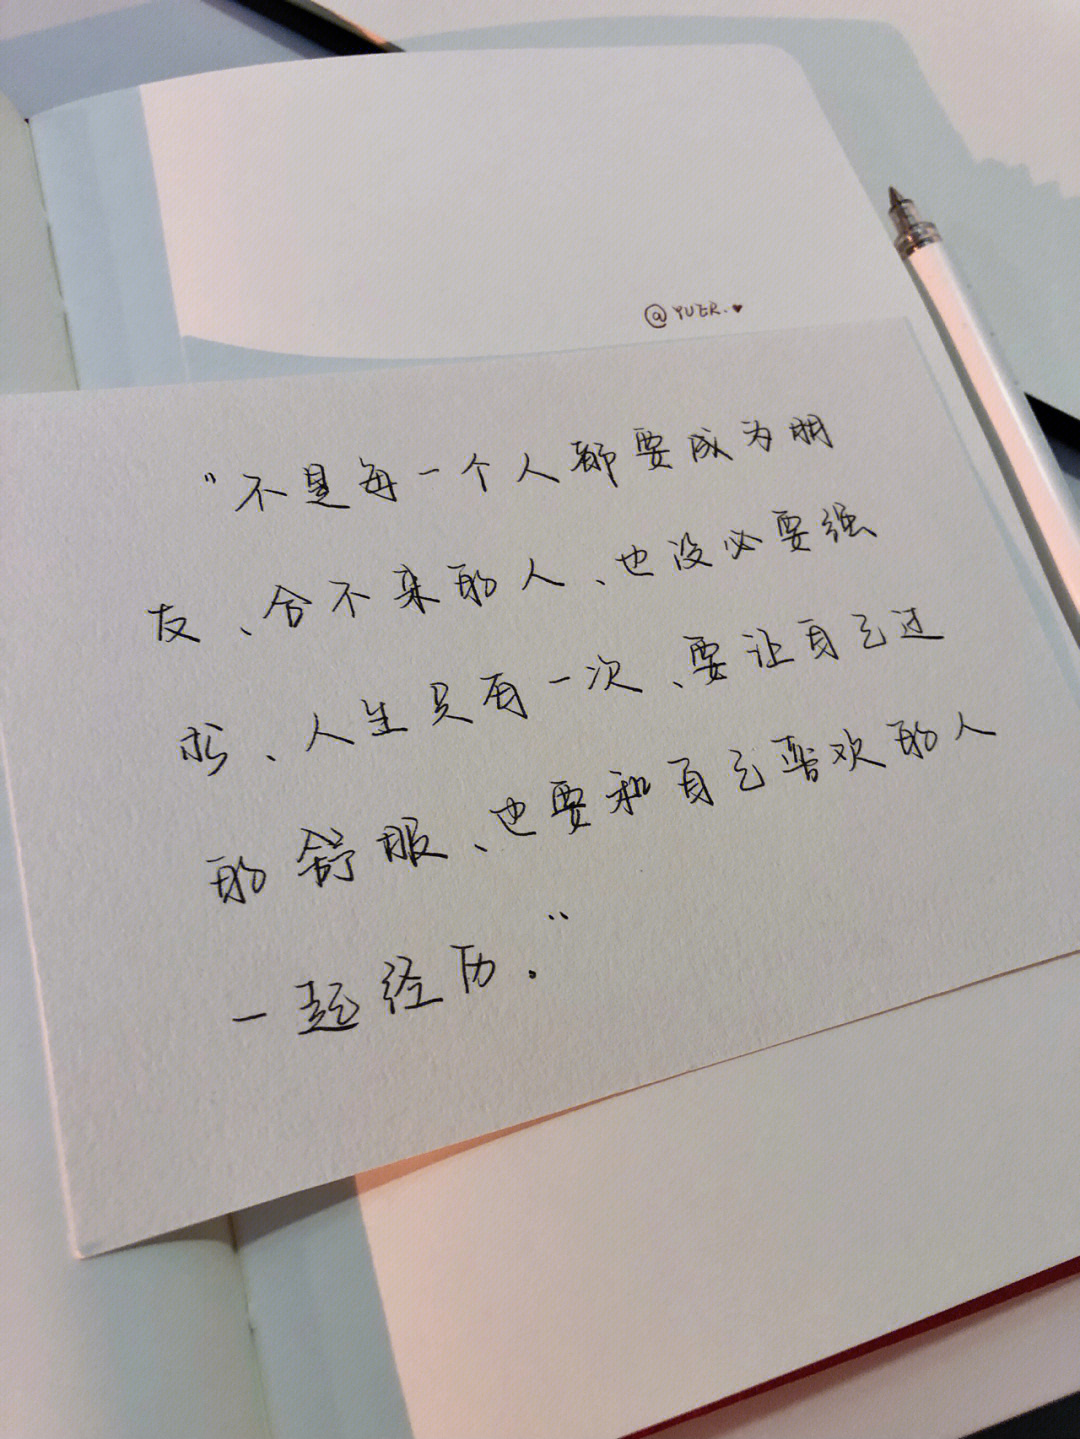 @YUER.♥
“不是每一个人都要成为朋
友、合不来的人、也没必要强
求、人生只有一次、要让自己过
的舒服、也要和自己喜欢的人
一起经历.”